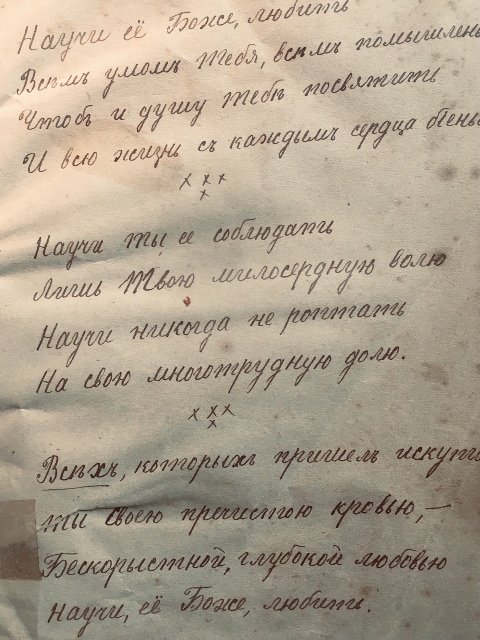 Научи её Боже, любить
Всѣмъ умомъ Тебя, всѣмъ помышлень
Чтобъ и душу Тебѣ посвятить
И всю жизнь съ каждымъ сердца біень
х х х
х
Научи ты ее соблюдать
Лишь Твою милосердную волю
Научи никогда не роптать
На свою многотрудную долю.
х х х
х
Всѣхъ, которыхъ пришелъ искупи
ты своею пречистою кровью, —
Безкорыстной, глубокой любовью
Научи, её Боже, любити.